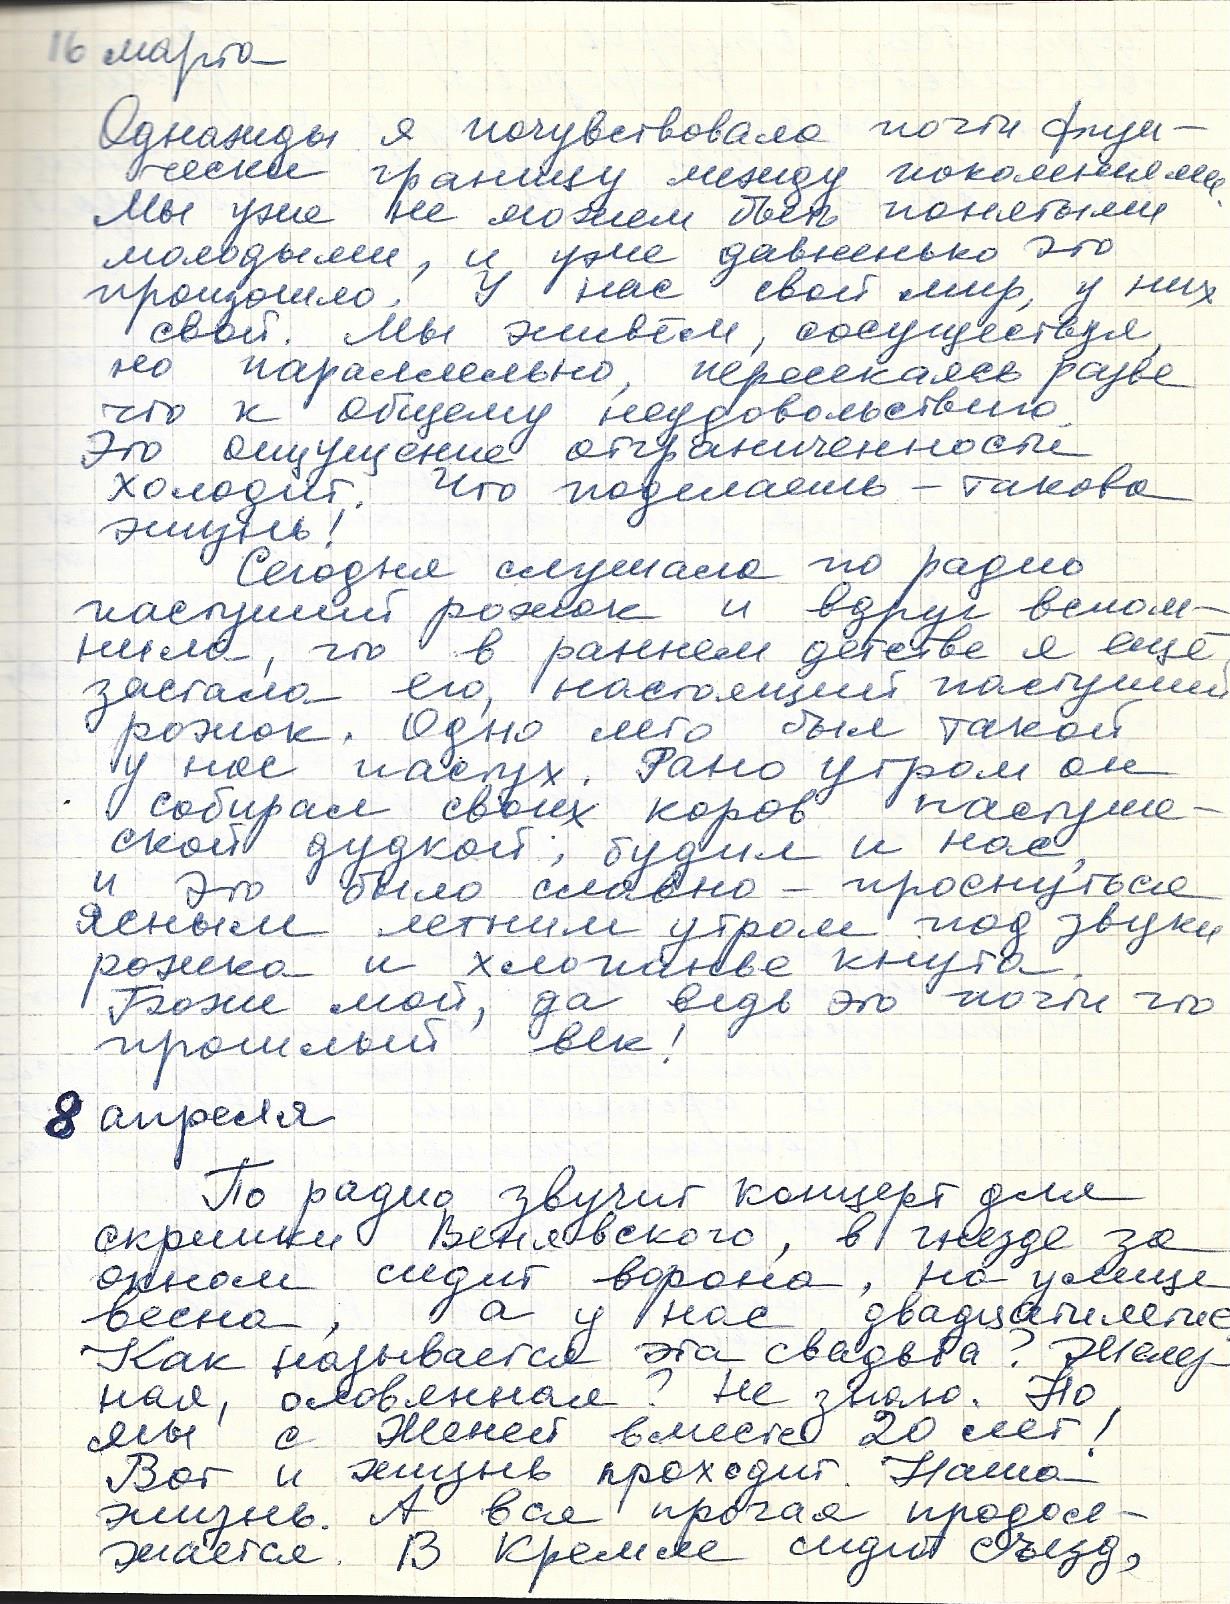 16 марта
Однажды я почувствовала почти физи-
чески границу между поколениями.
Мы уже не можем быть понятыми
молодыми, и уже давненько это
произошло. У нас свой мир, у них
свой. Мы живём, сосуществуя,
но параллельно, пересекаясь разве
что к общему неудовольствию.
Это ощущение отграниченности
холодит. Что поделаешь – такова
жизнь!
Сегодня слушала по радио
пастуший рожок и вдруг вспом-
нила, что в раннем детстве я ещё
застала его, настоящий пастуший
рожок. Одно лето был такой
у нас пастух. Рано утром он
собирал своих коров пастуше-
ской дудкой, будил и нас,
и это было славно – проснуться
ясным летним утром под звуки
рожка и хлопанье кнута.
Боже мой, да ведь это почти что
прошлый век!
8 апреля
По радио звучит концерт для
скрипки Венявского, в гнезде за
окном сидит ворона, на улице
весна, а у нас двадцатилетие
Как называется эта свадьба? Желез-
ная, оловянная? Не знаю. Но
мы с Женей вместе 20 лет!
Вот и жизнь проходит. Наша
жизнь. А вся прочая продол-
жается. В Кремле сидит съезд,